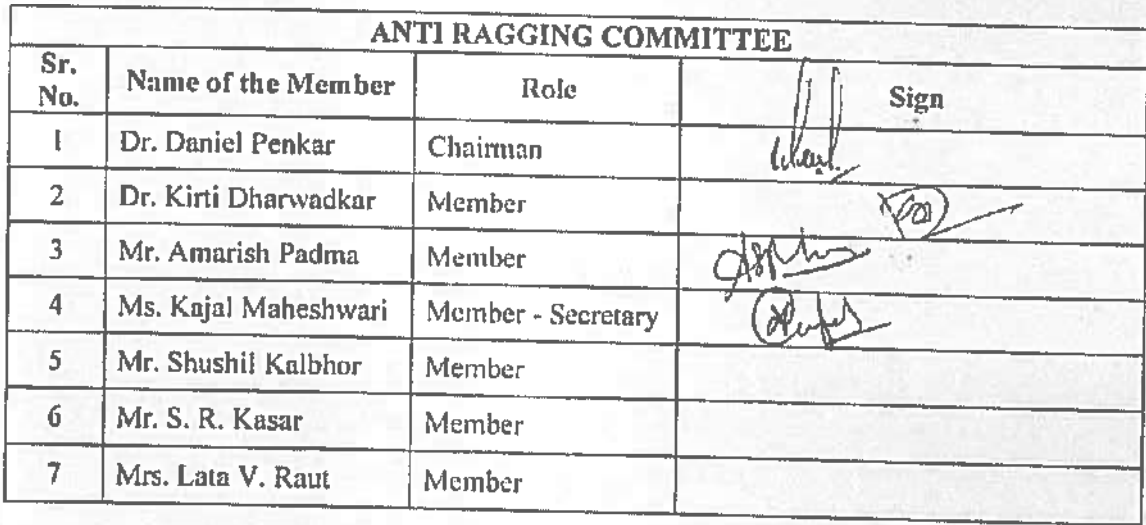 ANTI RAGGING COMMITTEE
Sr. No. Name of the Member Role Sign
1 Dr. Daniel Penkar Chairman
2 Dr. Kirti Dharwadkar Member
3 Mr. Amarish Padma Member
4 Ms. Kajal Maheshwari Member - Secretary
5 Mr. Shushil Kalbhor Member
6 Mr. S. R. Kasar Member
7 Mrs. Lata V. Raut Member